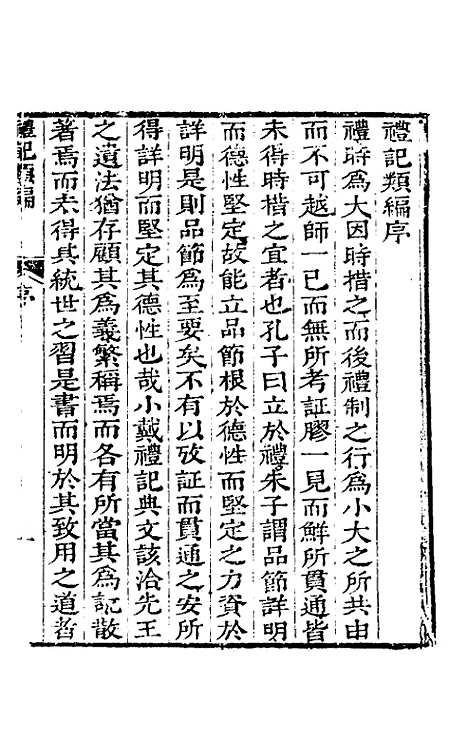 禮記類編序
禮時爲大因時措之而後禮制之行爲小大之所共由
而不可越師一已而無所考証膠一見而鮮所貫通皆
未得時措之宜者也孔子曰立於禮朱子謂品節詳明
而德性堅定故能立品節根於德性而堅定之力資於
詳明是則品節爲至要矣不有以攷証而貫通之安所
得詳明而堅定其德性也哉小戴禮記典文該洽先王
之遺法猶存顧其爲義繁稱焉而各有所當其爲記散
著焉而未得其統世之習是書而明於其致用之道者
禮記類編
序
一